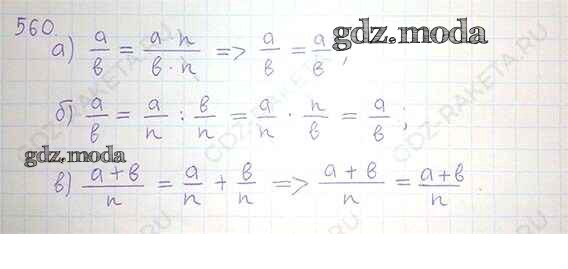 560.
а) a/b = a·n/b·n => a/b = a/b ;
gdz.moda
б) a/b = a/n : b/n = a/n · n/b = a/b ;
gdz.moda
в) a+b/n = a/n + b/n => a+b/n = a+b/n .
GDZ-RAKETA.RU